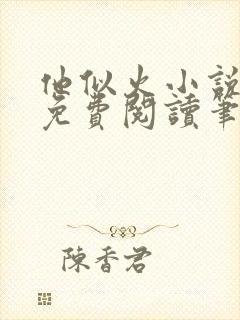 他似火小説
免費閱讀筆
陳香君